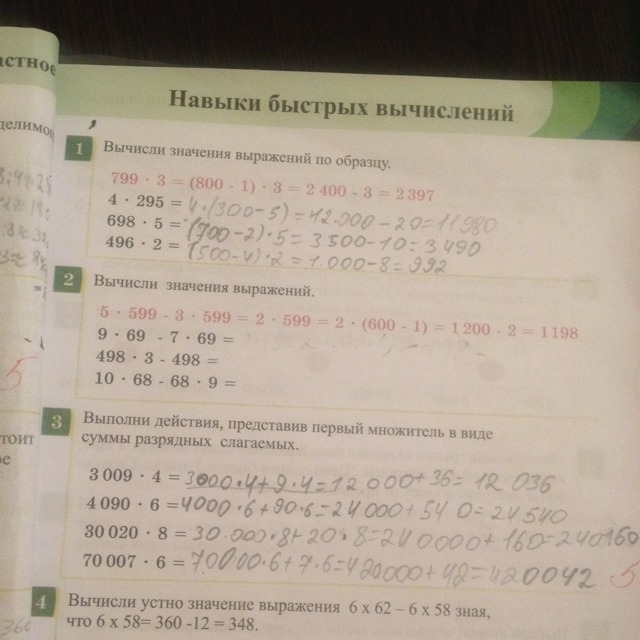 астное
Навыки быстрых вычислений
делимог
1 Вычисли значения выражений по образцу.
799 · 3 = (800 - 1) · 3 = 2 400 - 3 = 2 397
4 · 295 = 4·(300-5)=12.000-20=11980
698 · 5 = (700-2)·5=3500-10=3.490
496 · 2 = (500-4)·2=1.000-8=992
2 Вычисли значения выражений.
5 · 599 - 3 · 599 = 2 · 599 = 2 · (600 - 1) = 1 200 - 2 = 1 198
9 · 69 - 7 · 69 =
498 · 3 - 498 =
10 · 68 - 68 · 9 =
5
3 Выполни действия, представив первый множитель в виде
суммы разрядных слагаемых.
тоит
ое
3 009 · 4 = 3000·4+9·4=12 000+36= 12 036
4 090 · 6 = 4000·6+90·6=24000+540=24540
30 020 · 8 = 30.000·8+20·8=240000+160=240160
70 007 · 6 = 70000·6+7·6=420000+42=420042 5
4 Вычисли устно значение выражения 6 х 62 – 6 х 58 зная,
что 6 х 58= 360 -12 = 348.
360